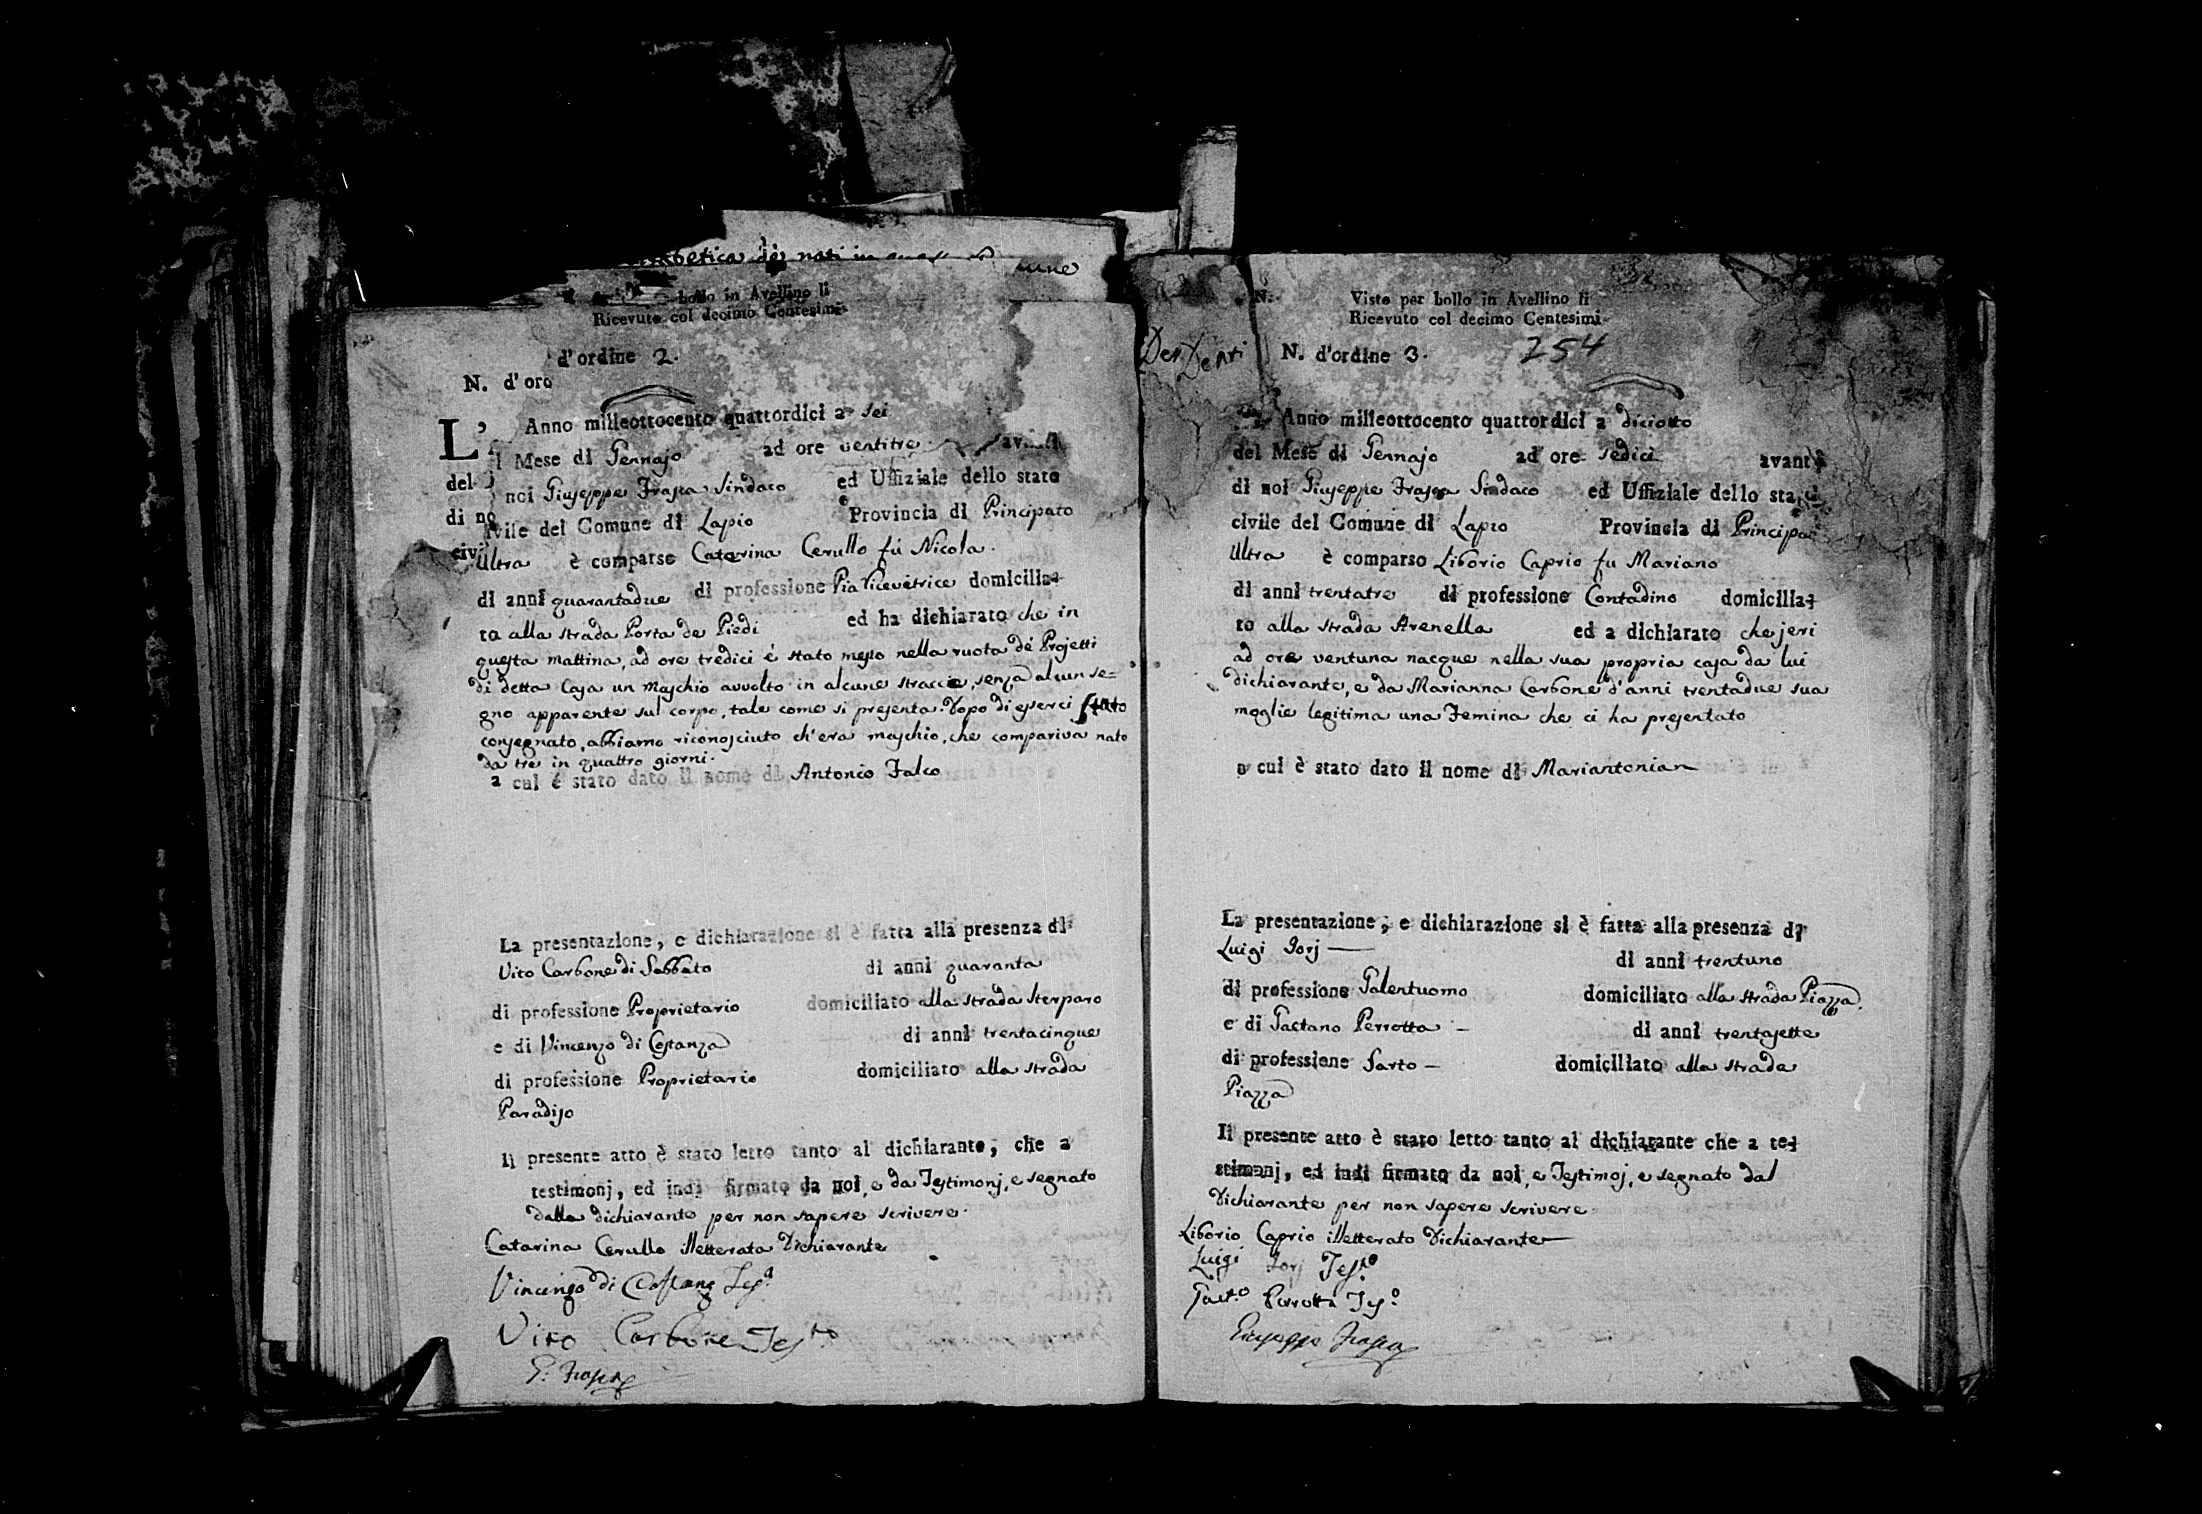 betica de nati in
bollo in Avellino li
Ricevuto col decimo Centesimi
d'ordine 2.
N. d'oro
L'
Anno milleottocento quattordici a sei
Mese di Gennajo ad ore ventitre
del
noi Giuseppe Frasca Sindaco ed Uffiziale dello stato
di no
ivile del Comune di Lapio Provincia di Principato
civi
Ultra è comparse Catarina Cerullo fù Nicola.
di anni quarantadue di professione Pia Ricevetrice domicilia-
ta alla strada Porta de Piedi ed ha dichiarato che in
questa mattina, ad ore tredici è stato messo nella ruota dè Projetti
di detta Casa un maschio avvolto in alcune straccie, senza alcun se=
gno apparente sul corpo, tale come si presenta. Dopo di esserci stato
consegnato, abbiamo riconosciuto ch'era maschio, che compariva nato
da tre in quattro giorni.
a cui è stato dato il nome di Antonio Falco
La presentazione, e dichiarazione si è fatta alla presenza di
Vito Carbone di Sabbato di anni quaranta
di professione Proprietario domiciliato alla strada Sterparo
e di Vincenzo di Costanza di anni trentacinque
di professione Proprietario domiciliato alla strada
Paradiso
Il presente atto è stato letto tanto al dichiarante, che a
testimonj, ed indi firmato da noi, e da Testimonj, e segnato
dalla dichiarante per non sapere scrivere.
Catarina Cerullo illetterata Dichiarante
Vincenzo di Costanza Tes.º
Vito Carbone Tes.to
G. Frasca
N.
Visto per bollo in Avellino li
Ricevuto col decimo Centesimi
N. d'ordine 3. 254
Anno milleottocento quattordici a diciotto
del Mese di Gennajo ad ore sedici avanti
di noi Giuseppe Frasca Sindaco ed Uffiziale dello sta
civile del Comune di Lapio Provincia di Principa
Ultra è comparso Liborio Caprio fu Mariano
di anni trentatre di professione Contadino domicilia-
to alla strada Arenella ed a dichiarato che jeri
ad ore ventuna nacque nella sua propria casa da lui
dichiarante, e da Marianna Carbone d'anni trentadue sua
moglie legitima una Femina che ci ha presentato
a cui è stato dato il nome di Mariantonia
La presentazione, e dichiarazione si è fatta alla presenza di
Luigi Jorj di anni trentuno
di professione Galentuomo domiciliato alla strada Piazza
e di Gaetano Perrotta di anni trentasette
di professione Sarto domiciliato alla strada
Piazza
Il presente atto è stato letto tanto al dichiarante che a te-
stimonj, ed indi firmato da noi, e Testimoj, e segnato dal
Dichiarante per non sapere scrivere
Liborio Caprio illetterato Dichiarante
Luigi Jorj Tes.to
Gaet.o Perrotta Tes.o
Giuseppe Frasca